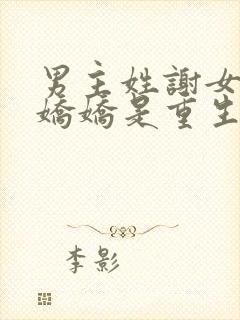 男主姓謝女
嬌嬌是重生
李影